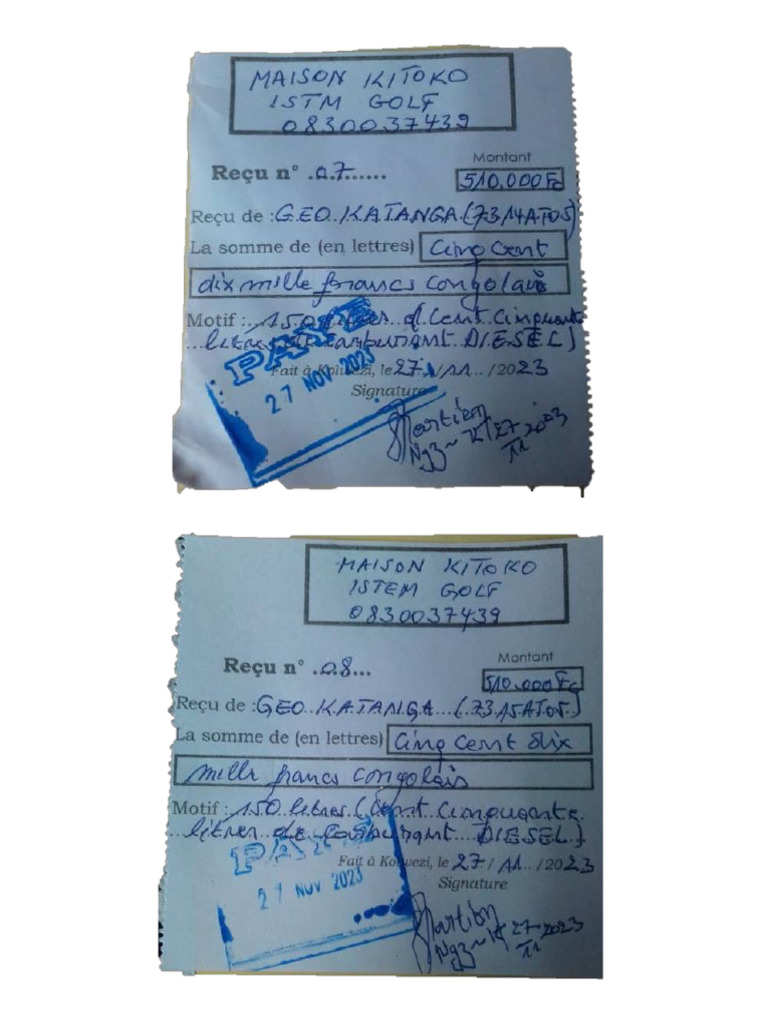 MAISON KITOKO
ISTM GOLF
0830037439
Montant
Reçu n° .07......
510.000 Fc
Reçu de : GEO KATANGA (7314AT05)
La somme de (en lettres) Cinq cent
dix mille francs congolais
Motif : 150 litres (Cent cinquante
litres de carburant DIESEL)
PAYE
Fait à Kolwezi, le 27 / 11 / 2023
27 NOV 2023
Signature
27
11 2023
MAISON KITOKO
ISTEM GOLF
0830037439
Montant
Reçu n° .08...
510.000 Fc
Reçu de : GEO KATANGA (7315AT05)
La somme de (en lettres) Cinq cent dix
mille francs congolais
Motif : 150 litres (Cent Cinquante
litres de Carburant DIESEL)
PAYE
Fait à Kolwezi, le 27 / 11 / 2023
27 NOV 2023
Signature
27 2023
11